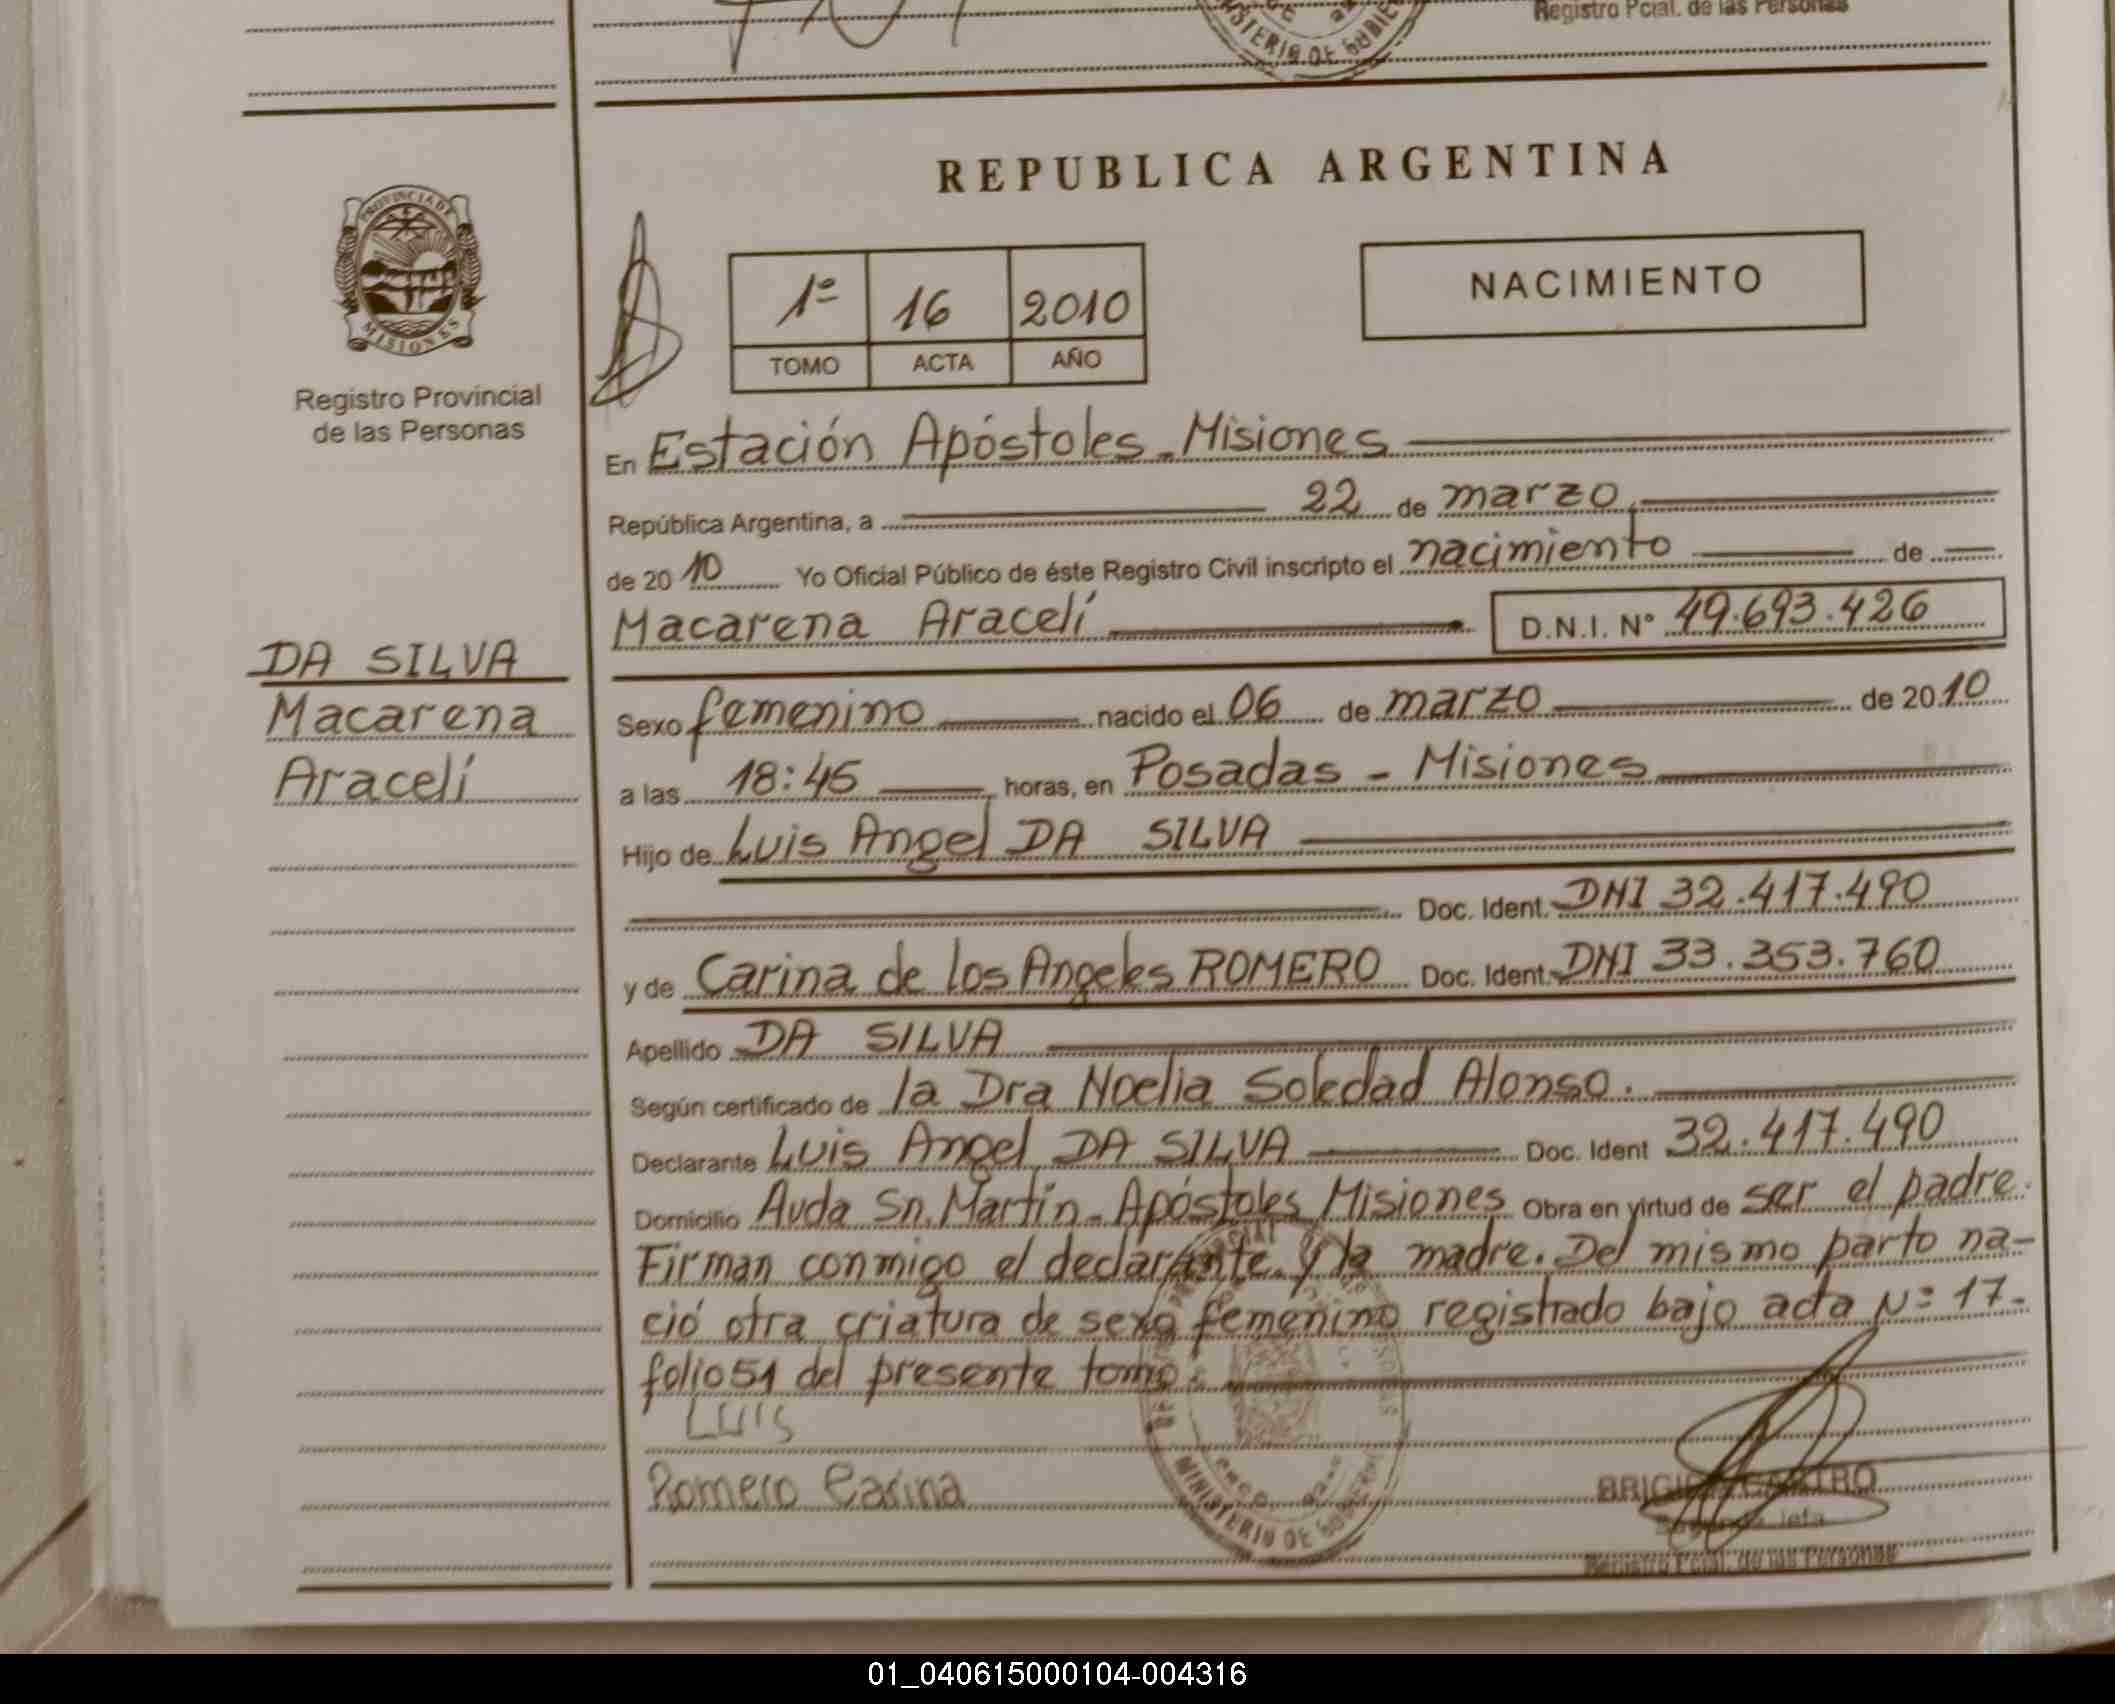 Registro Pcial. de las Personas
MINISTERIO DE GOBIERNO
REPUBLICA ARGENTINA
PROVINCIA DE
MISIONES
Registro Provincial
de las Personas
1º 16 2010
TOMO ACTA AÑO
NACIMIENTO
En Estación Apóstoles - Misiones
República Argentina, a 22 de marzo
de 2010 Yo Oficial Público de éste Registro Civil inscripto el nacimiento de
Macarena Aracelí D.N.I. Nº 49.693.426
DA SILVA
Macarena
Aracelí
Sexo femenino nacido el 06 de marzo de 2010
a las 18:45 horas, en Posadas - Misiones
Hijo de Luis Angel DA SILVA
Doc. Ident. DNI 32.417.490
y de Carina de los Angeles ROMERO Doc. Ident. DNI 33.353.760
Apellido DA SILVA
Según certificado de la Dra Noelia Soledad Alonso.
Declarante Luis Angel DA SILVA Doc. Ident 32.417.490
Domicilio Avda Sn. Martín - Apóstoles Misiones Obra en virtud de ser el padre.
Firman conmigo el declarante y la madre. Del mismo parto na-
ció otra criatura de sexo femenino registrado bajo acta Nº 17-
folio 51 del presente tomo.
LUIS
Romero Carina
MINISTERIO DE GOBIERNO
CASTRO
Jefa
Registro Pcial. de las Personas
01_040615000104-004316